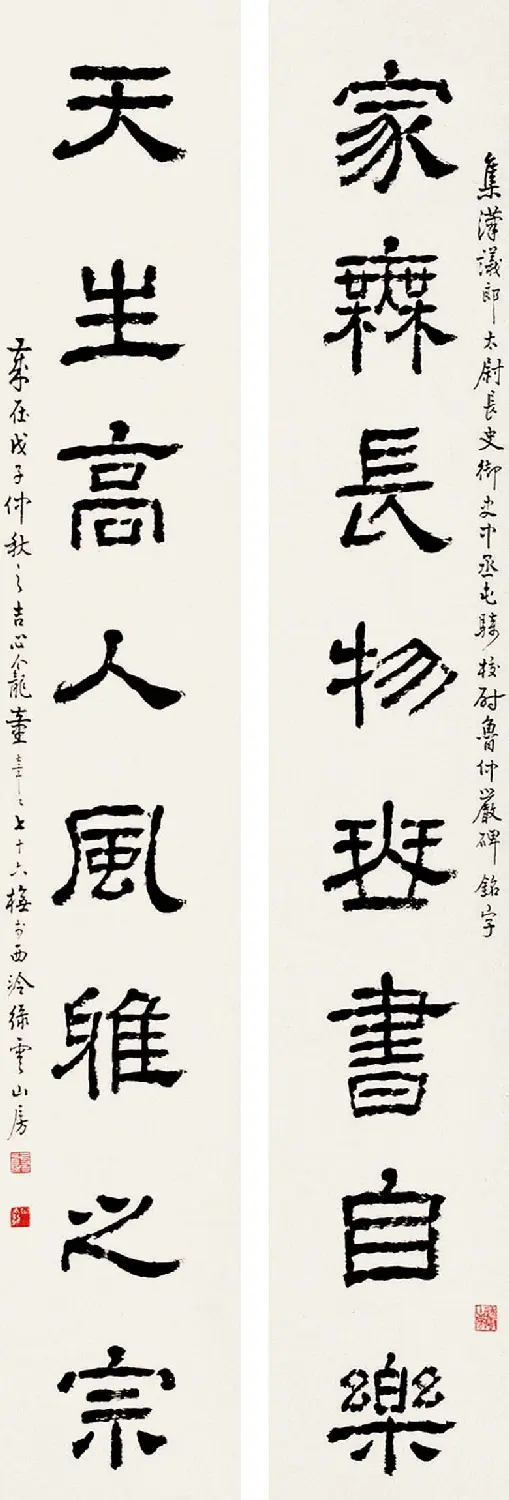 家無長物班書自樂
集漢議郎太尉長史御史中丞屯騎校尉魯仲嚴碑銘字
天生高人風雅之宗
歲在戊子仲秋之吉心龕童大年〻七十六於西泠綠雲山房